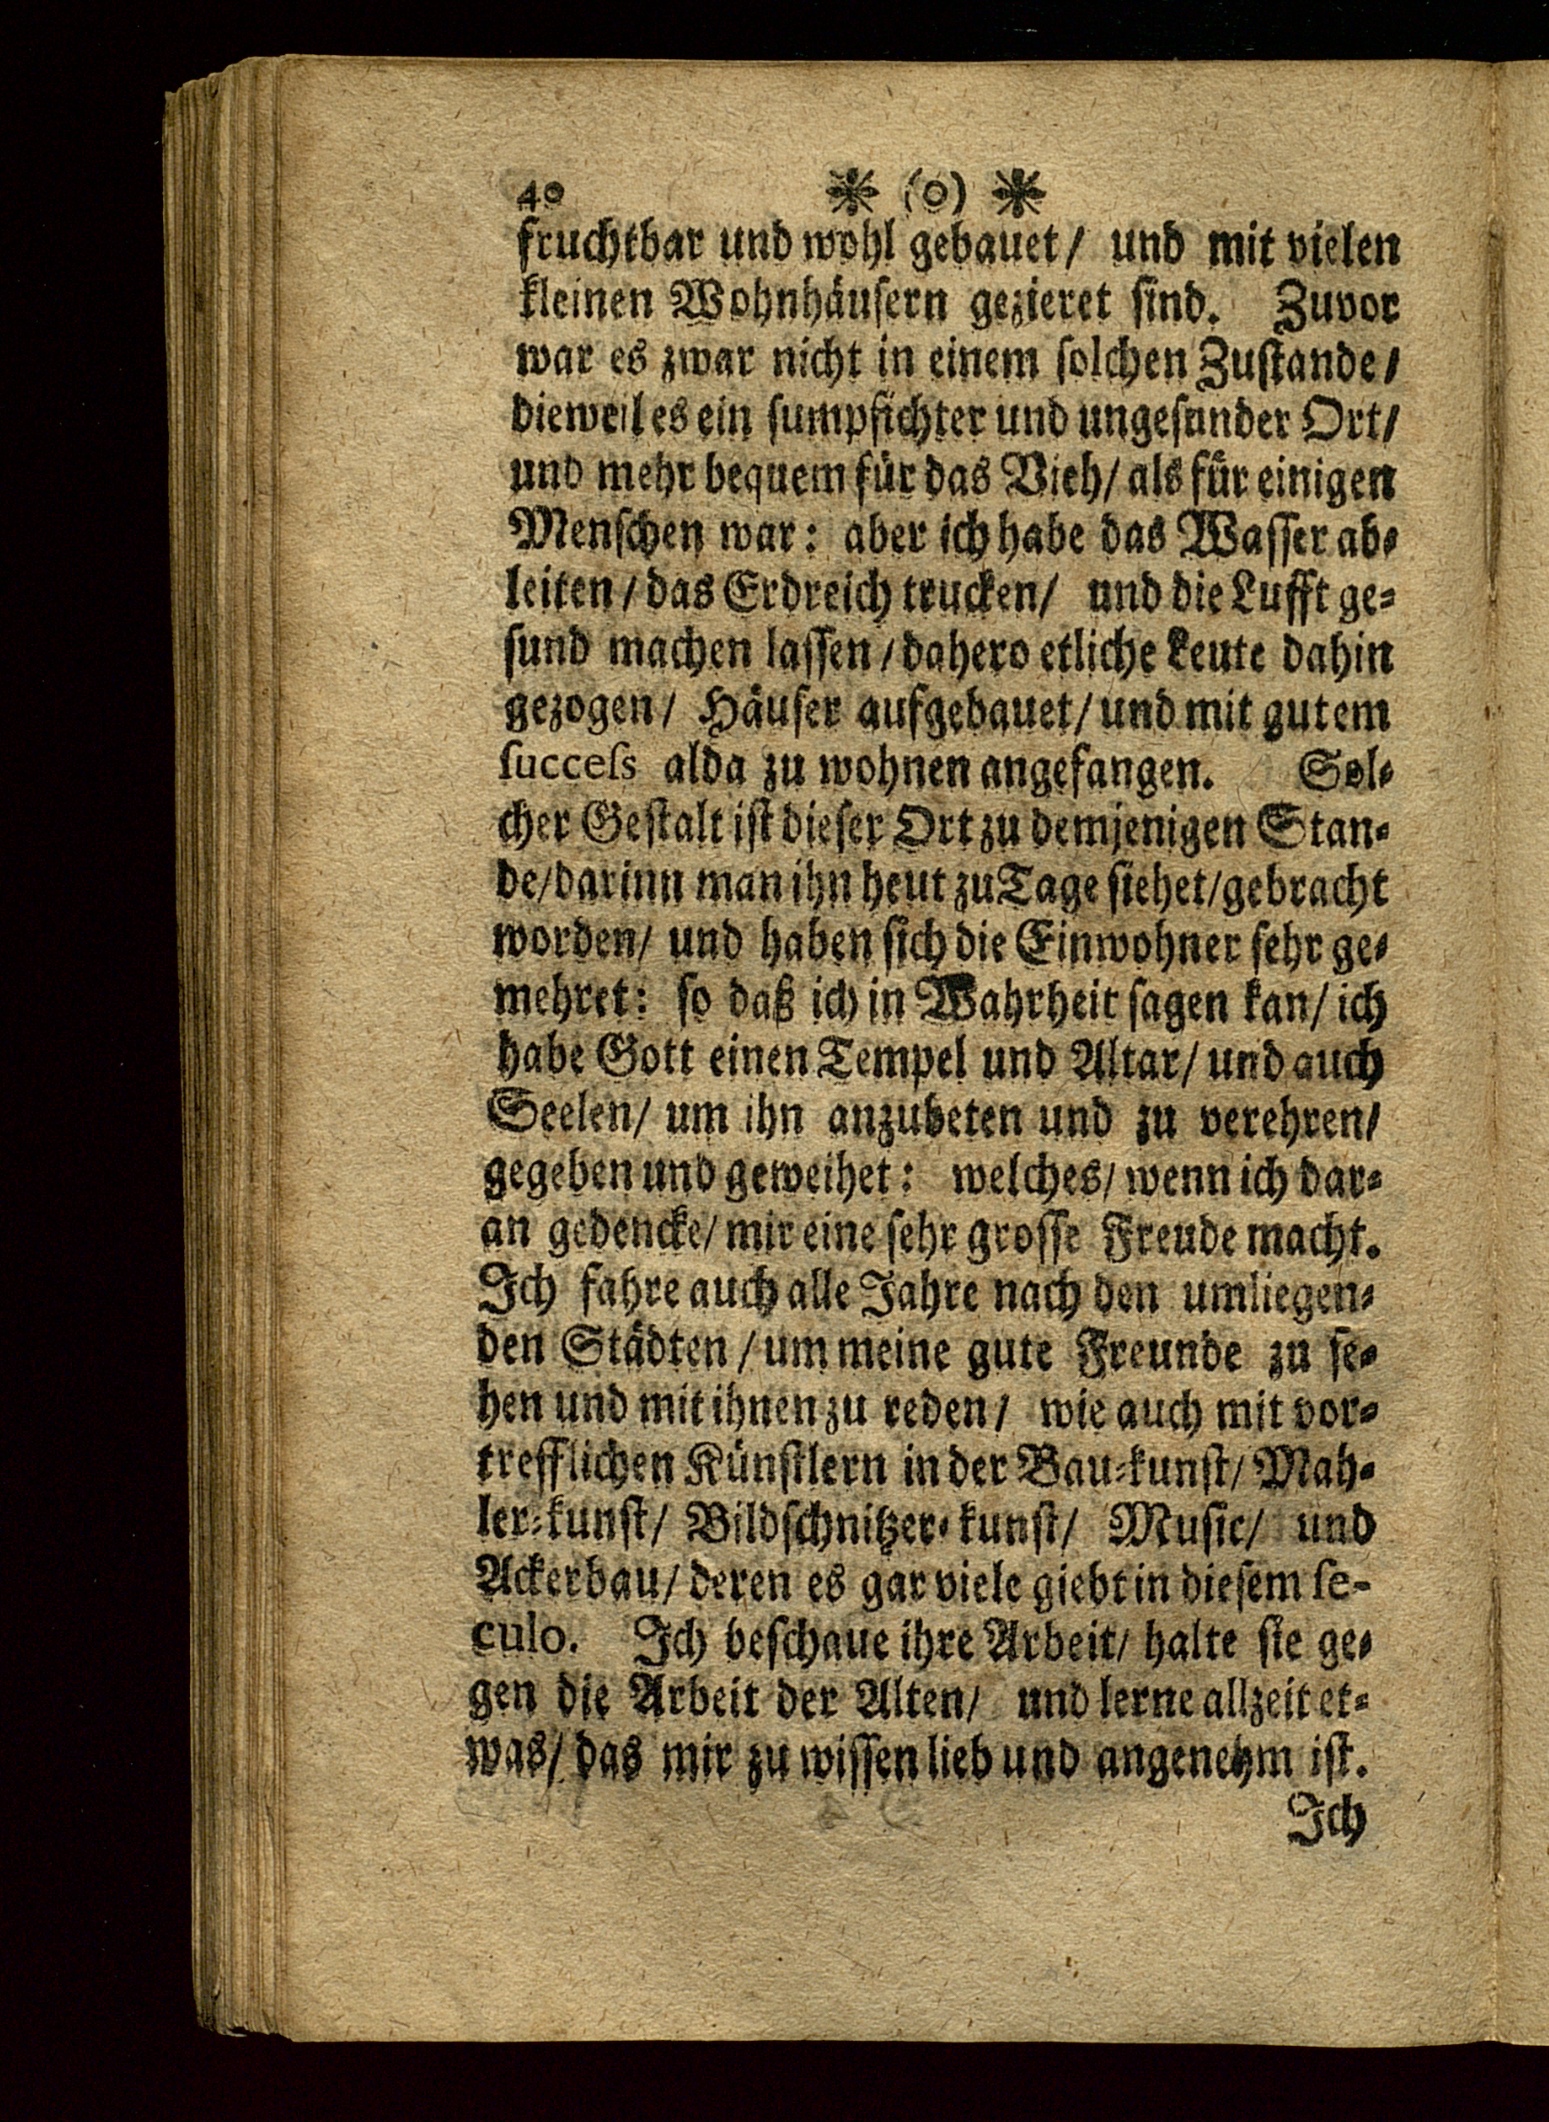 40 * (0) *
fruchtbar und wohl gebauet / und mit vielen
kleinen Wohnhäusern gezieret sind. Zuvor
war es zwar nicht in einem solchen Zustande /
dieweil es ein sumpfichter und ungesunder Ort /
und mehr bequem für das Vieh / als für einigen
Menschen war: aber ich habe das Wasser ab-
leiten / das Erdreich trucken / und die Lufft ge-
sund machen lassen / dahero etliche Leute dahin
gezogen / Häuser aufgebauet / und mit gutem
success alda zu wohnen angefangen. Sol-
cher Gestalt ist dieser Ort zu demjenigen Stan-
de / darinn man ihn heut zu Tage siehet / gebracht
worden / und haben sich die Einwohner sehr ge-
mehret: so daß ich in Wahrheit sagen kan / ich
habe Gott einen Tempel und Altar / und auch
Seelen / um ihn anzubeten und zu verehren /
gegeben und geweihet: welches / wenn ich dar-
an gedencke / mir eine sehr grosse Freude macht.
Ich fahre auch alle Jahre nach den umliegen-
den Städten / um meine gute Freunde zu se-
hen und mit ihnen zu reden / wie auch mit vor-
trefflichen Künstlern in der Bau-kunst / Mah-
ler-kunst / Bildschnitzer-kunst / Music / und
Ackerbau / deren es gar viele giebt in diesem se-
culo. Ich beschaue ihre Arbeit / halte sie ge-
gen die Arbeit der Alten / und lerne allzeit et-
was / das mir zu wissen lieb und angenehm ist.
Ich